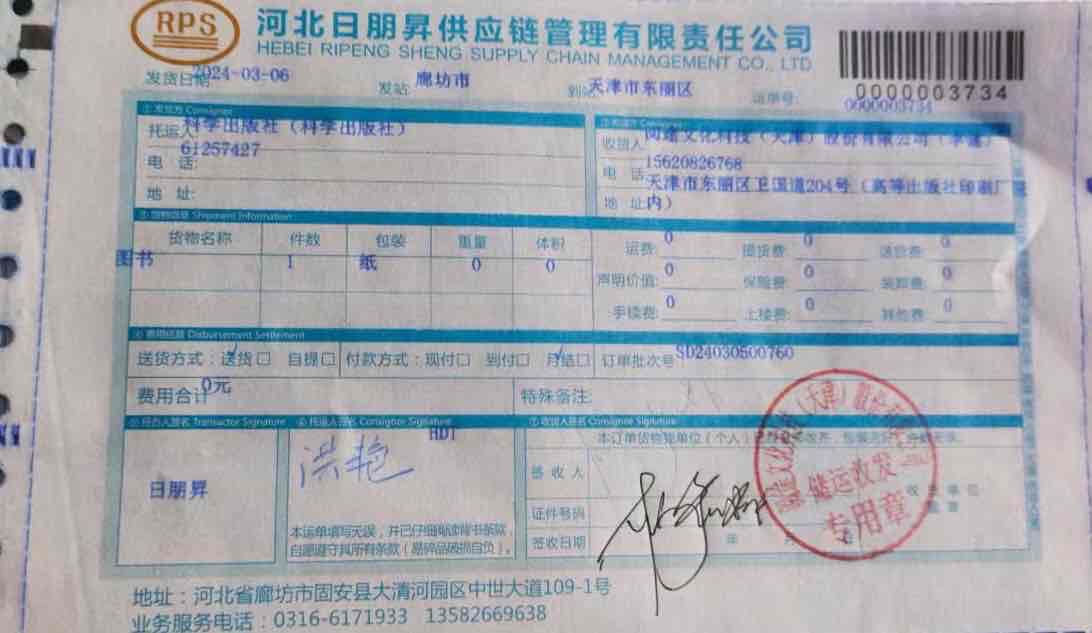 RPS
河北日朋昇供应链管理有限责任公司
HEBEI RIPENG SHENG SUPPLY CHAIN MANAGEMENT CO., LTD
0000003734
发货日期: 2024-03-06 发站: 廊坊市 到站: 天津市东丽区 运单号: 0000003734
①发货方 Consignee
托运人 科学出版社（科学出版社） 收货人
电 话: 61257427 电 话: 15620826768
地 址: 地 址: 天津市东丽区卫国道204号（高等出版社印刷厂内）
Shipment Information
货物名称 件数 包装 重量 体积 运费: 0 提货费: 0 送货费: 0
图书 1 纸 0 0 声明价值: 0 保险费: 0 装卸费: 0
手续费: 0 上楼费: 0 其他费: 0
Disbursement Settlement
送货方式: 送货□ 自提□ 付款方式: 现付□ 到付□ 月结□ 订单批次号 SD24030500760
费用合计 0元 特殊备注:
经办人签名 Transactor Signature 托运人签名 Consignor Signature 收货人签名 Consignee Signature
HDT
日朋昇 洪艳 签收人
证件号码
签收日期 年
本运单填写无误，并已仔细阅读背书条款，
自愿遵守其所有条款（易碎品破损自负）。
储运收发
专用章
地址：河北省廊坊市固安县大清河园区中世大道109-1号
业务服务电话：0316-6171933 13582669638